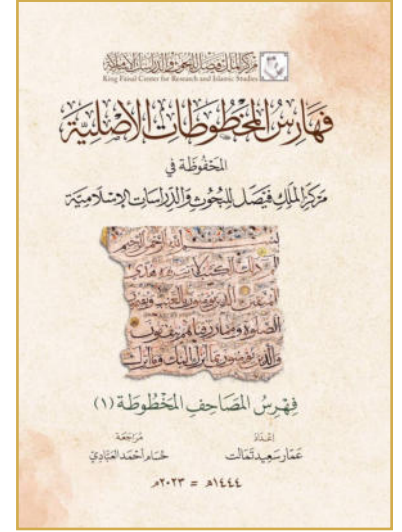 مركز الملك فيصل للبحوث والدراسات الإسلامية
King Faisal Center for Research and Islamic Studies
فَهَارِسُ المَخْطُوطَاتِ الأَصْلِيَّة
المَحْفُوظَة فِي
مَركَز الملَك فَيصَل للبُحُوث وَالدِّرَاسَات الإسْلَاميَّة
بسم الله الرحمن الرحيم
ذلك الكتب لا ريب فيه هدى
للمتقين الذين يؤمنون بالغيب ويقيمون
الصلوة ومما رزقنهم ينفقون
والذين يؤمنون بما أنزل إليك وما أنزل
فِهْرِسُ المَصَاحِفِ المَخْطُوطَة (١)
إعْدَادُ
عَمَّار سَعِيد تَمَالت
مُرَاجَعَة
حُسَام أَحْمَد العَبَّادِيّ
١٤٤٤هـ = ٢٠٢٣م